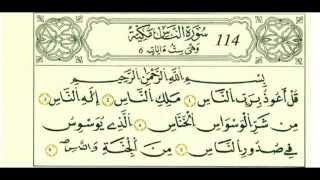 سُورَةُ النَّاسِ مَكِّيَّة
114
وَهِيَ سِتُّ وَايَات ٦
بِسْمِ اللَّهِ الرَّحْمَنِ الرَّحِيمِ
قُلْ أَعُوذُ بِرَبِّ النَّاسِ ١ مَلِكِ النَّاسِ ٢ إِلَٰهِ النَّاسِ ٣
مِن شَرِّ الْوَسْوَاسِ الْخَنَّاسِ ٤ الَّذِي يُوَسْوِسُ
فِي صُدُورِ النَّاسِ ٥ مِنَ الْجِنَّةِ وَالنَّاسِ ٦